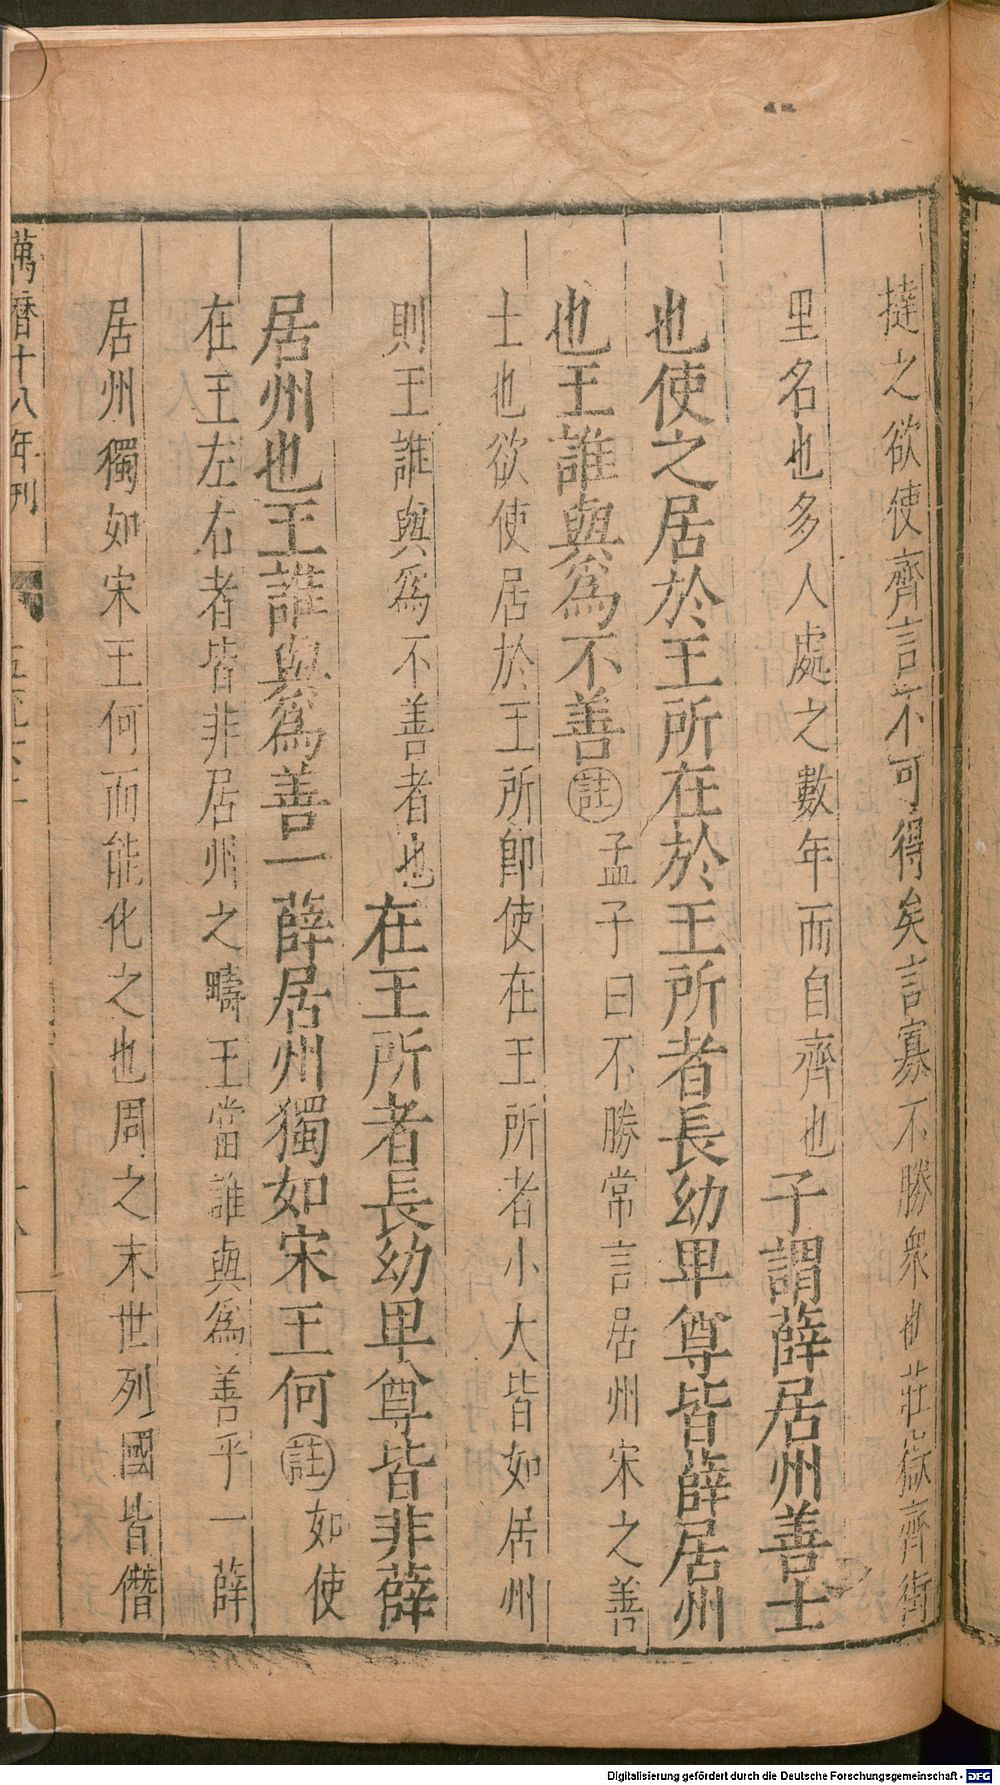 撻之欲使齊言不可得矣言寡不勝衆也莊嶽齊街
里名也多人處之數年而自齊也子謂薛居州善士
也使之居於王所在於王所者長幼卑尊皆薛居州
也王誰與爲不善註孟子曰不勝常言居州宋之善
士也欲使居於王所卽使在王所者小大皆如居州
則王誰與爲不善者也在王所者長幼卑尊皆非薛
居州也王誰與爲善一薛居州獨如宋王何註如使
在王左右者皆非居州之疇王當誰與爲善乎一薛
居州獨如宋王何而能化之也周之末世列國皆僭
萬曆十八年刊
十八
Digitalisierung gefördert durch die Deutsche Forschungsgemeinschaft - DFG